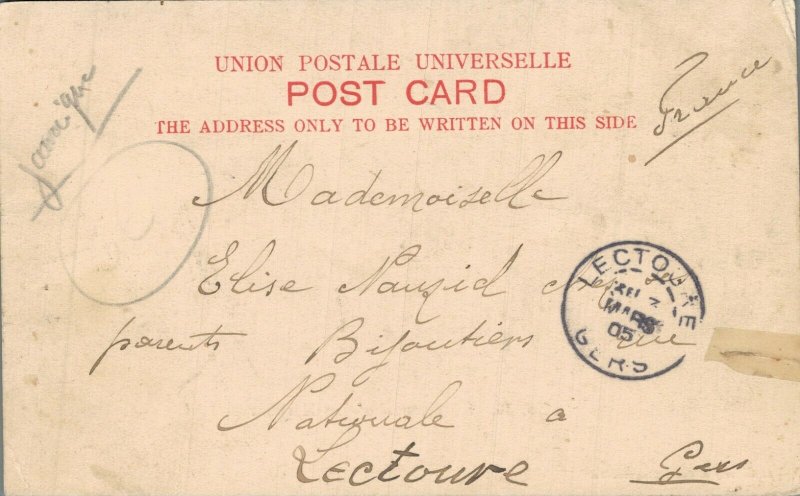 UNION POSTALE UNIVERSELLE
POST CARD
THE ADDRESS ONLY TO BE WRITTEN ON THIS SIDE
France
Jamaique
Mademoiselle
Elise Nauzid
parents Bijoutiers rue
Nationale à
Lectoure Gers
LECTOURE
MARS
05
GERS